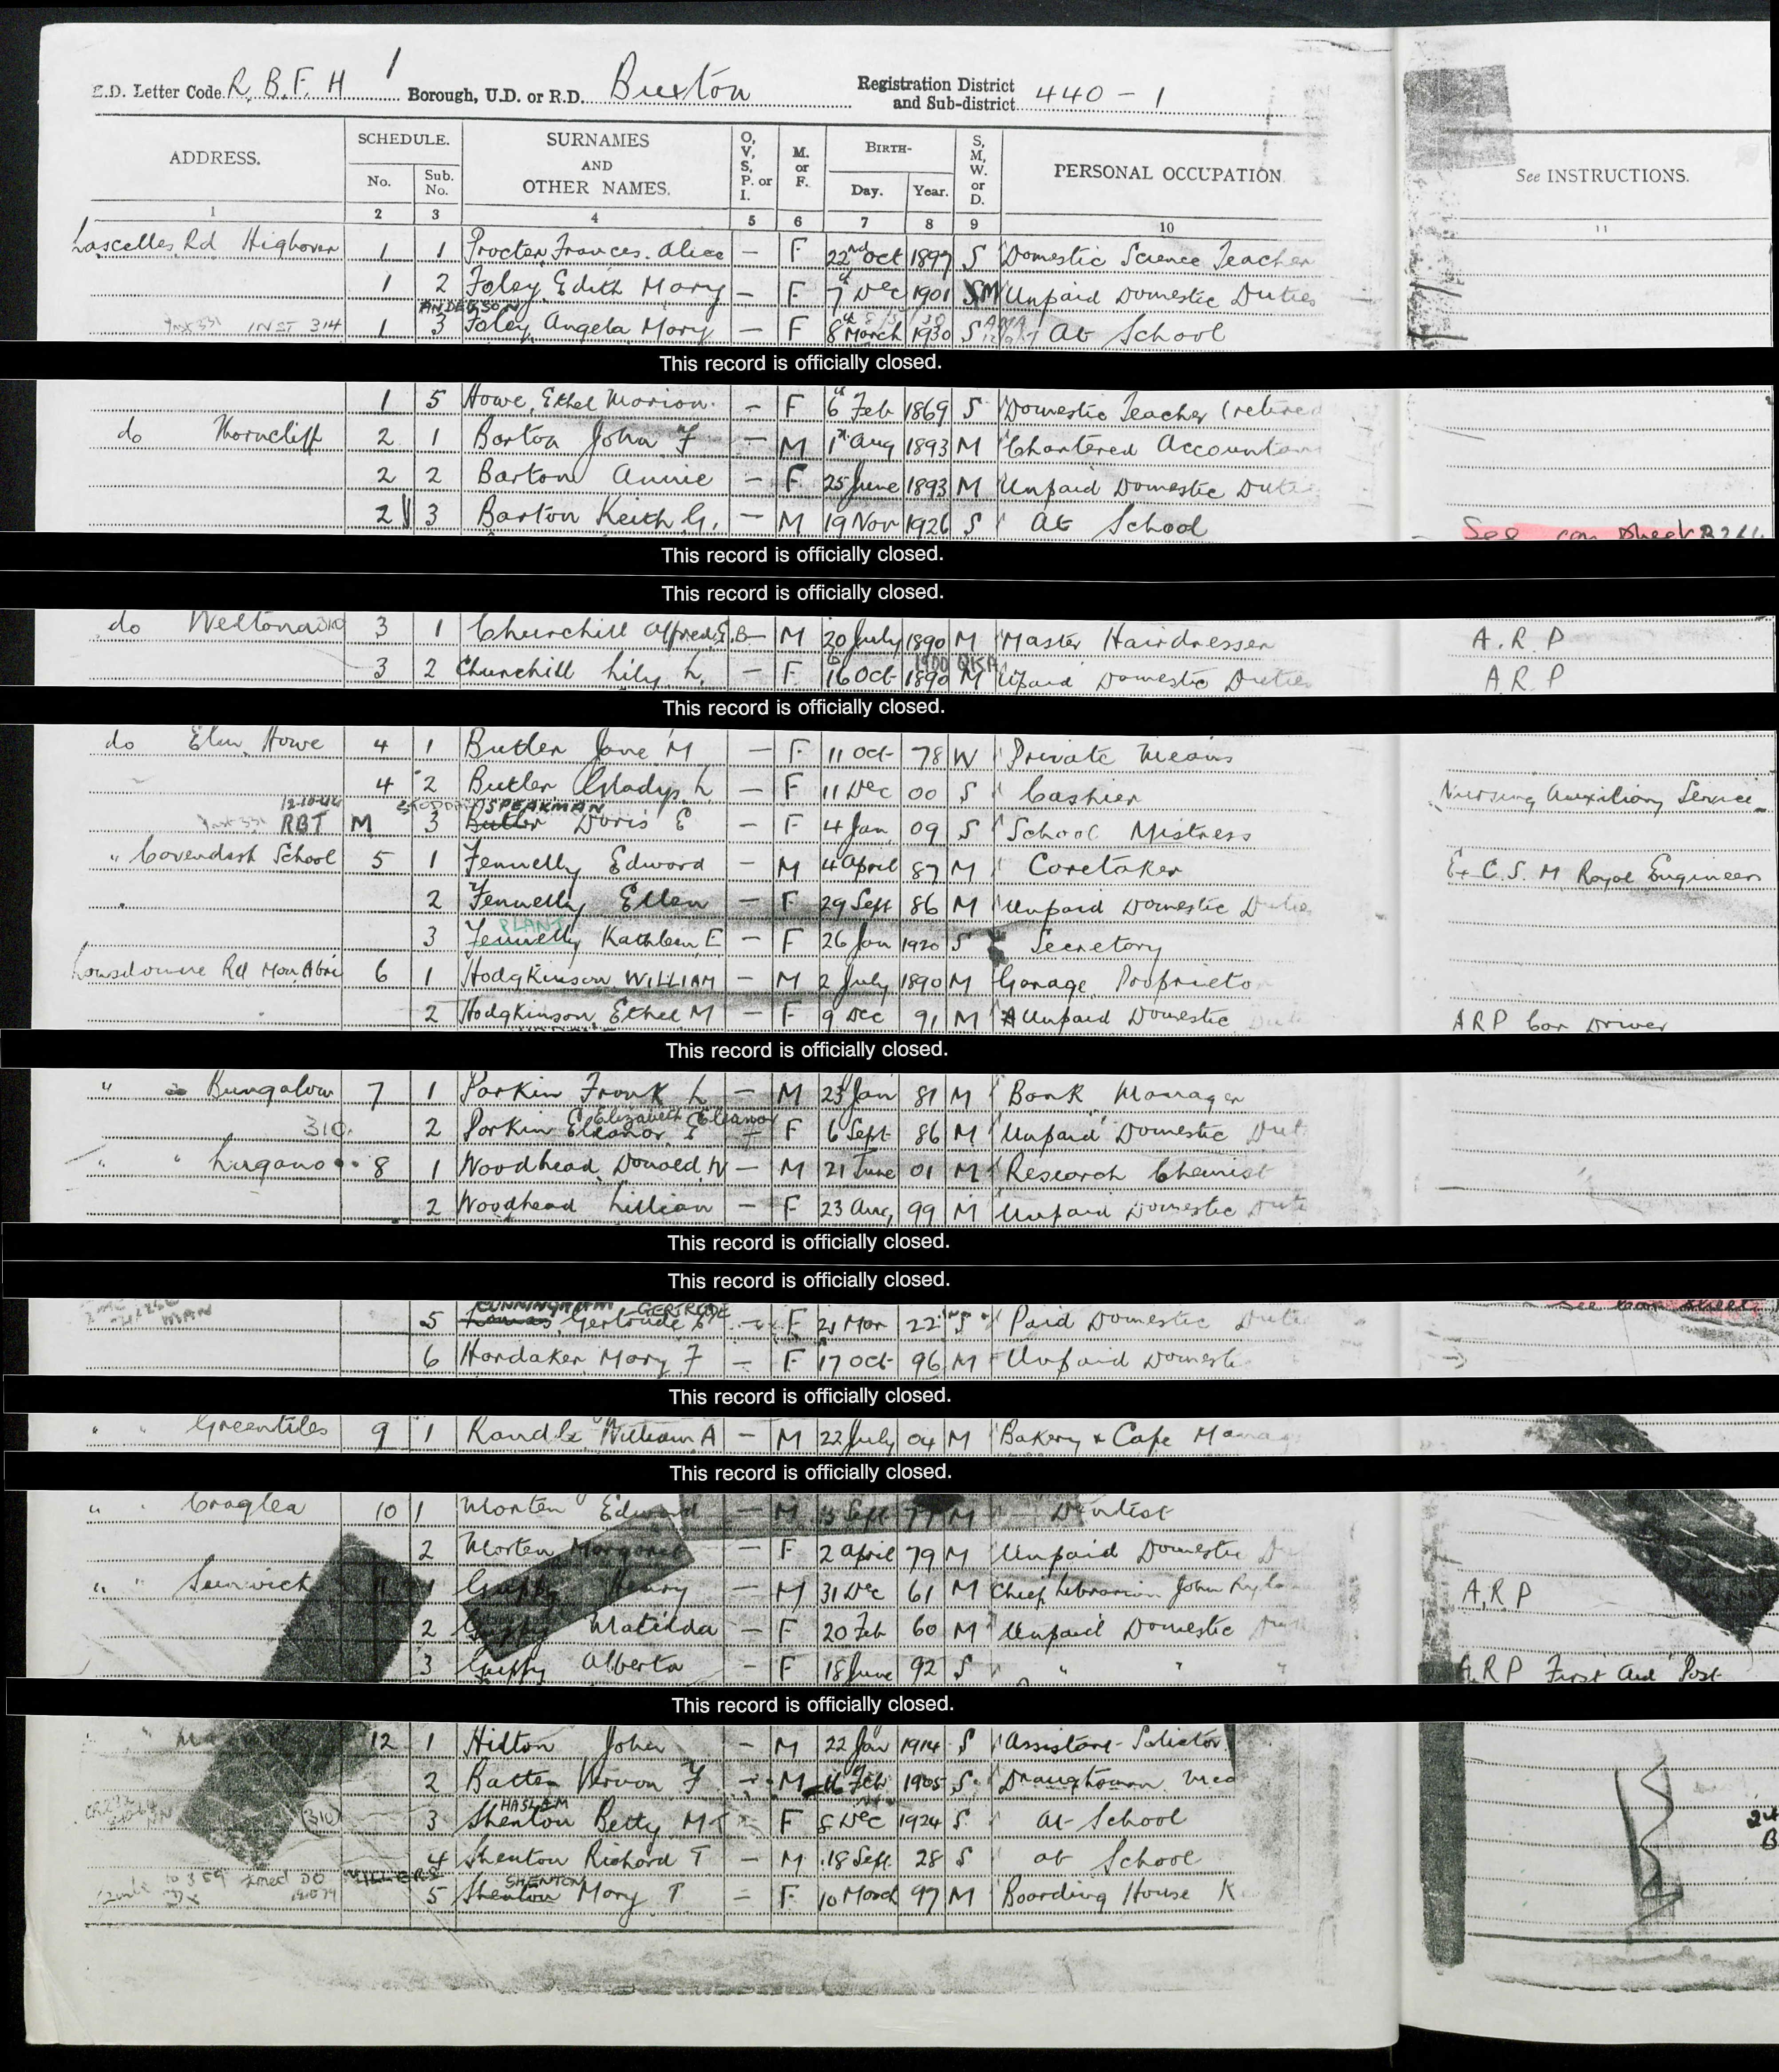 E.D. Letter Code R.B.F.H 1 Borough, U.D. or R.D. Buxton Registration District and Sub-district 440-1
ADDRESS. SCHEDULE. No. Sub. No. SURNAMES AND OTHER NAMES. O, V, S, P. or I. M. or F. BIRTH- Day. Year. S, M, W. or D. PERSONAL OCCUPATION. See INSTRUCTIONS.
1 2 3 4 5 6 7 8 9 10 11
Lascelles Rd Highover 1 1 Procter Frances. Alice — F 22nd Oct 1897 S Domestic Science Teacher
1 2 Foley Edith Mary — F 7 Dec 1901 M Unpaid Domestic Duties
ANDERSON
INST 314 1 3 Foley Angela Mary — F 8 March 1930 S At School
This record is officially closed.
1 5 Howe, Ethel Marion — F 6 Feb 1869 S Domestic Teacher (retired
do Thorncliff 2 1 Barton John F — M 1st Aug 1893 M Chartered Accountan
2 2 Barton Annie — F 25 June 1893 M Unpaid Domestic Duties
2 3 Barton Keith G. — M 19 Nov 1926 S At School See con sheet
This record is officially closed.
This record is officially closed.
do Weltona 3 1 Churchill Alfred E.B — M 20 July 1890 M Master Hairdresser A.R.P
1900
3 2 Churchill Lily L. — F 16 Oct 1890 M Upaid Domestic Duties A.R.P
This record is officially closed.
do Elm Howe 4 1 Butler Jane M — F 11 Oct 78 W Private Means
4 2 Butler Gladys L — F 11 Dec 00 S Cashier Nursing Auxiliary Service
12.10.44 SPEAKMAN
RBT M 3 Butler Doris E — F 4 Jan 09 S School Mistress
" Cavendish School 5 1 Fennelly Edward — M 4 April 87 M Caretaker Ex C.S.M Royal Engineers
2 Fennelly Ellen — F 29 Sept 86 M Unpaid Domestic Duties
PLANT
3 Fennelly Kathleen E — F 26 Jan 1920 S Secretary
Lansdowne Rd Mon Abri 6 1 Hodgkinson WILLIAM — M 2 July 1890 M Garage Proprieto
2 Hodgkinson Ethel M — F 9 Dec 91 M Unpaid Domestic Duti ARP Car Driver
This record is officially closed.
" Bungalow 7 1 Parkin Frank L — M 23 Jan 81 M Bank Manager
Elizabeth Eleanor
310 2 Parkin Eleanor E F 6 Sept 86 M Unpaid Domestic Dut
" " Lugano 8 1 Woodhead Donald W — M 21 June 01 M Research Chemist
2 Woodhead Lillian — F 23 Aug 99 M Unpaid Domestic Dute
This record is officially closed.
This record is officially closed.
CUNNINGHAM GERTRUDE
5 Gertrude E — F 21 Mar 22 S Paid Domestic Dutie See con sheet
6 Hardaker Mary F — F 17 Oct 96 M Unpaid Domestic
This record is officially closed.
" " Greentiles 9 1 Randle William A — M 22 July 04 M Bakery & Cafe Manag
This record is officially closed.
" " Craglea 10 1 Morten Edward — M 13 Sept 77 M Dentist
2 Morten Margaret — F 2 April 79 M Unpaid Domestic Du
" " 11 1 Guppy Henry — M 31 Dec 61 M Chief Librarian John Ryla A.R.P
2 Guppy Matilda — F 20 Feb 60 M Unpaid Domestic
3 Guppy Alberta — F 18 June 92 S " " " A.R.P First Aid Post
This record is officially closed.
" 12 1 Hilton John — M 22 Jan 1914 S Assistant Solicitor
2 Batten Vernon F — M 16 Feb 1905 S Draughtsman
HASLAM
310 3 Shenton Betty M — F 8 Dec 1924 S At School
4 Shenton Richard T — M 18 Sept 28 S at School
SHENTON
5 Shenton Mary T — F 10 March 97 M Boarding House K